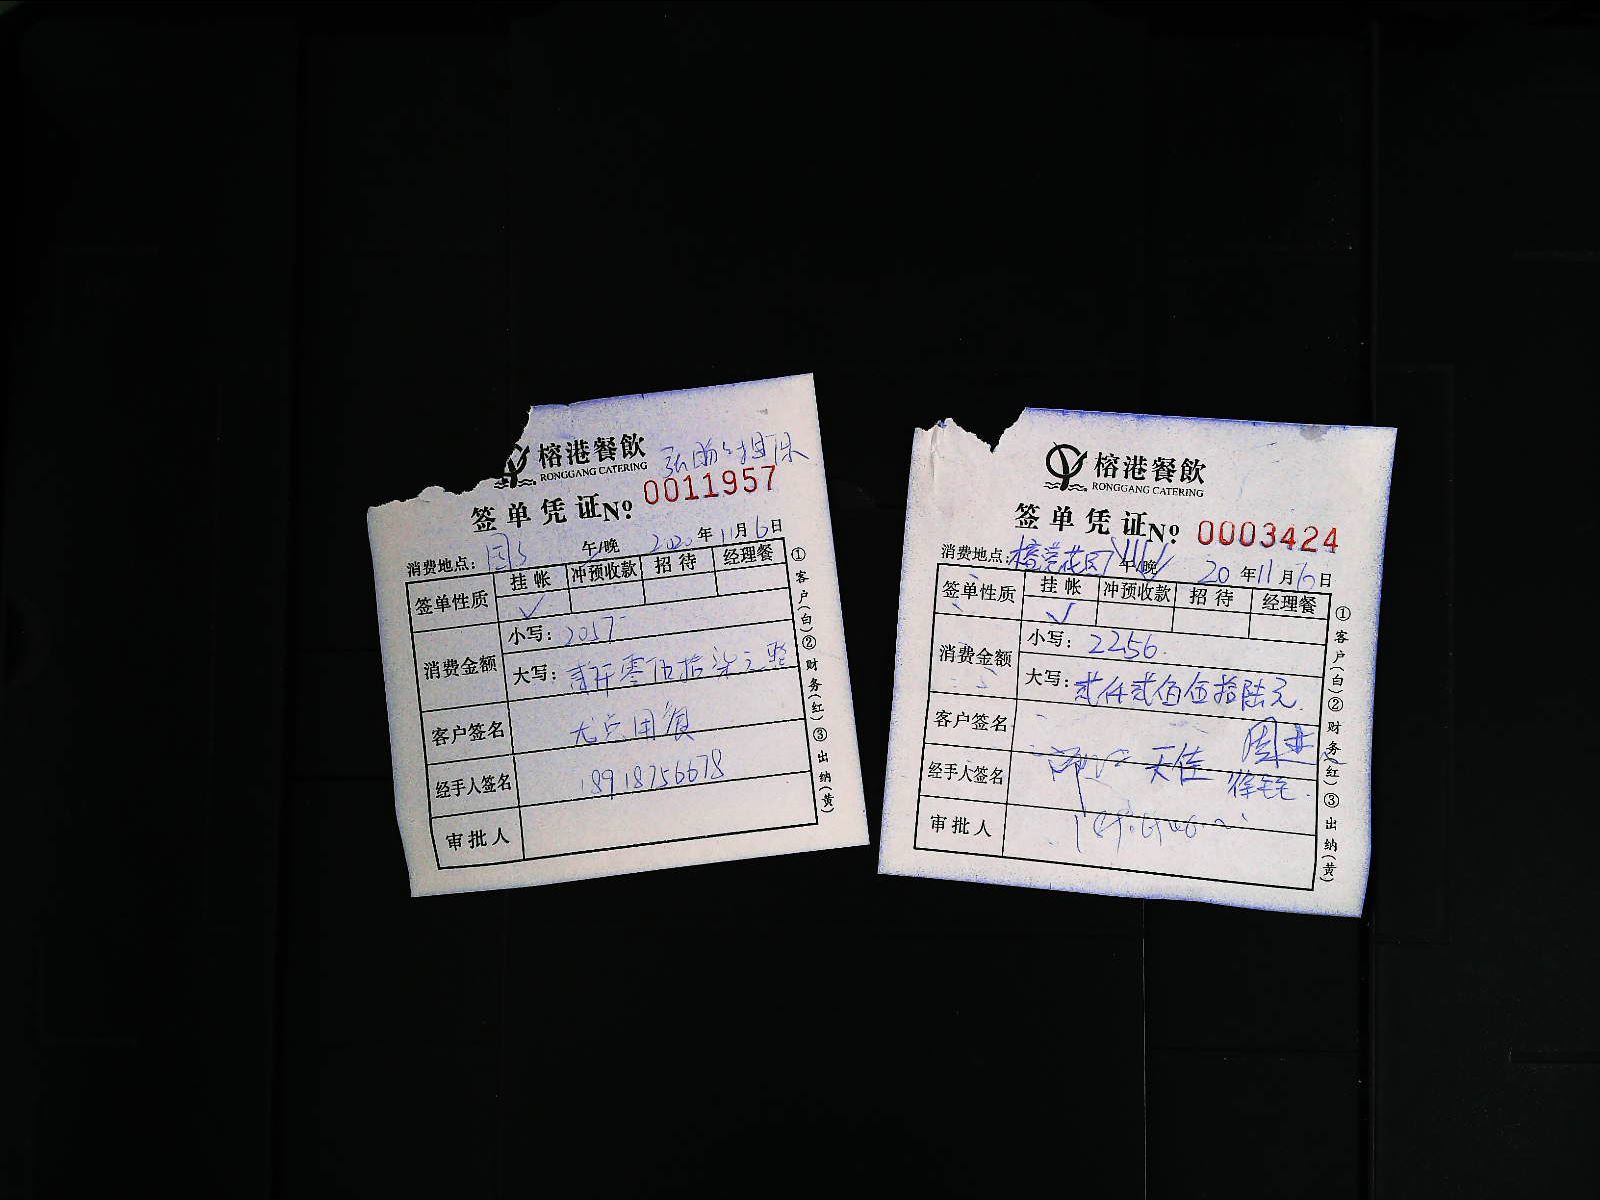 榕港餐飲
RONGGANG CATERING
签单凭证 No 0011957
消费地点: 午/晚 2020年11月6日
签单性质 挂帐 冲预收款 招待 经理餐
✓
消费金额 小写: 2057
大写: 贰仟零伍拾柒元整
客户签名 尤点用餐
经手人签名 18918756678
审批人
①客户(白)②财务(红)③出纳(黄)
榕港餐飲
RONGGANG CATERING
签单凭证 No 0003424
消费地点: 花园 午/晚 20年11月6日
签单性质 挂帐 冲预收款 招待 经理餐
✓
消费金额 小写: 2256.
大写: 贰仟贰佰伍拾陆元.
客户签名
经手人签名 天佳
审批人
①客户(白)②财务(红)③出纳(黄)